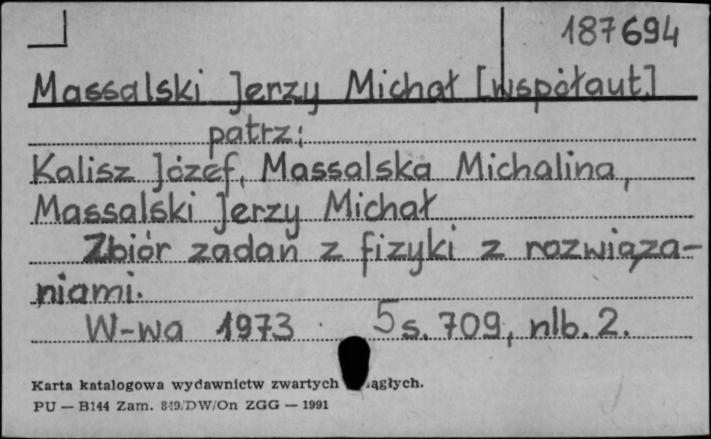 187694
Massalski Jerzy Michał [współaut.]
patrz:
Kalisz Józef, Massalska Michalina,
Massalski Jerzy Michał
Zbiór zadań z fizyki z rozwiąza-
niami.
W-wa 1973 5 s. 709, nlb. 2.
Karta katalogowa wydawnictw zwartych
PU — B144 Zam. 849/DW/On ZGG — 1991